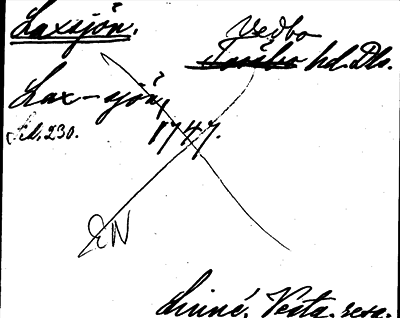 Laxsjön.
Vedbo
Tössbo hd. Dls.
Lax-sjön,
Sid. 230.
1747.
EN
Linné, Vestg. resa.